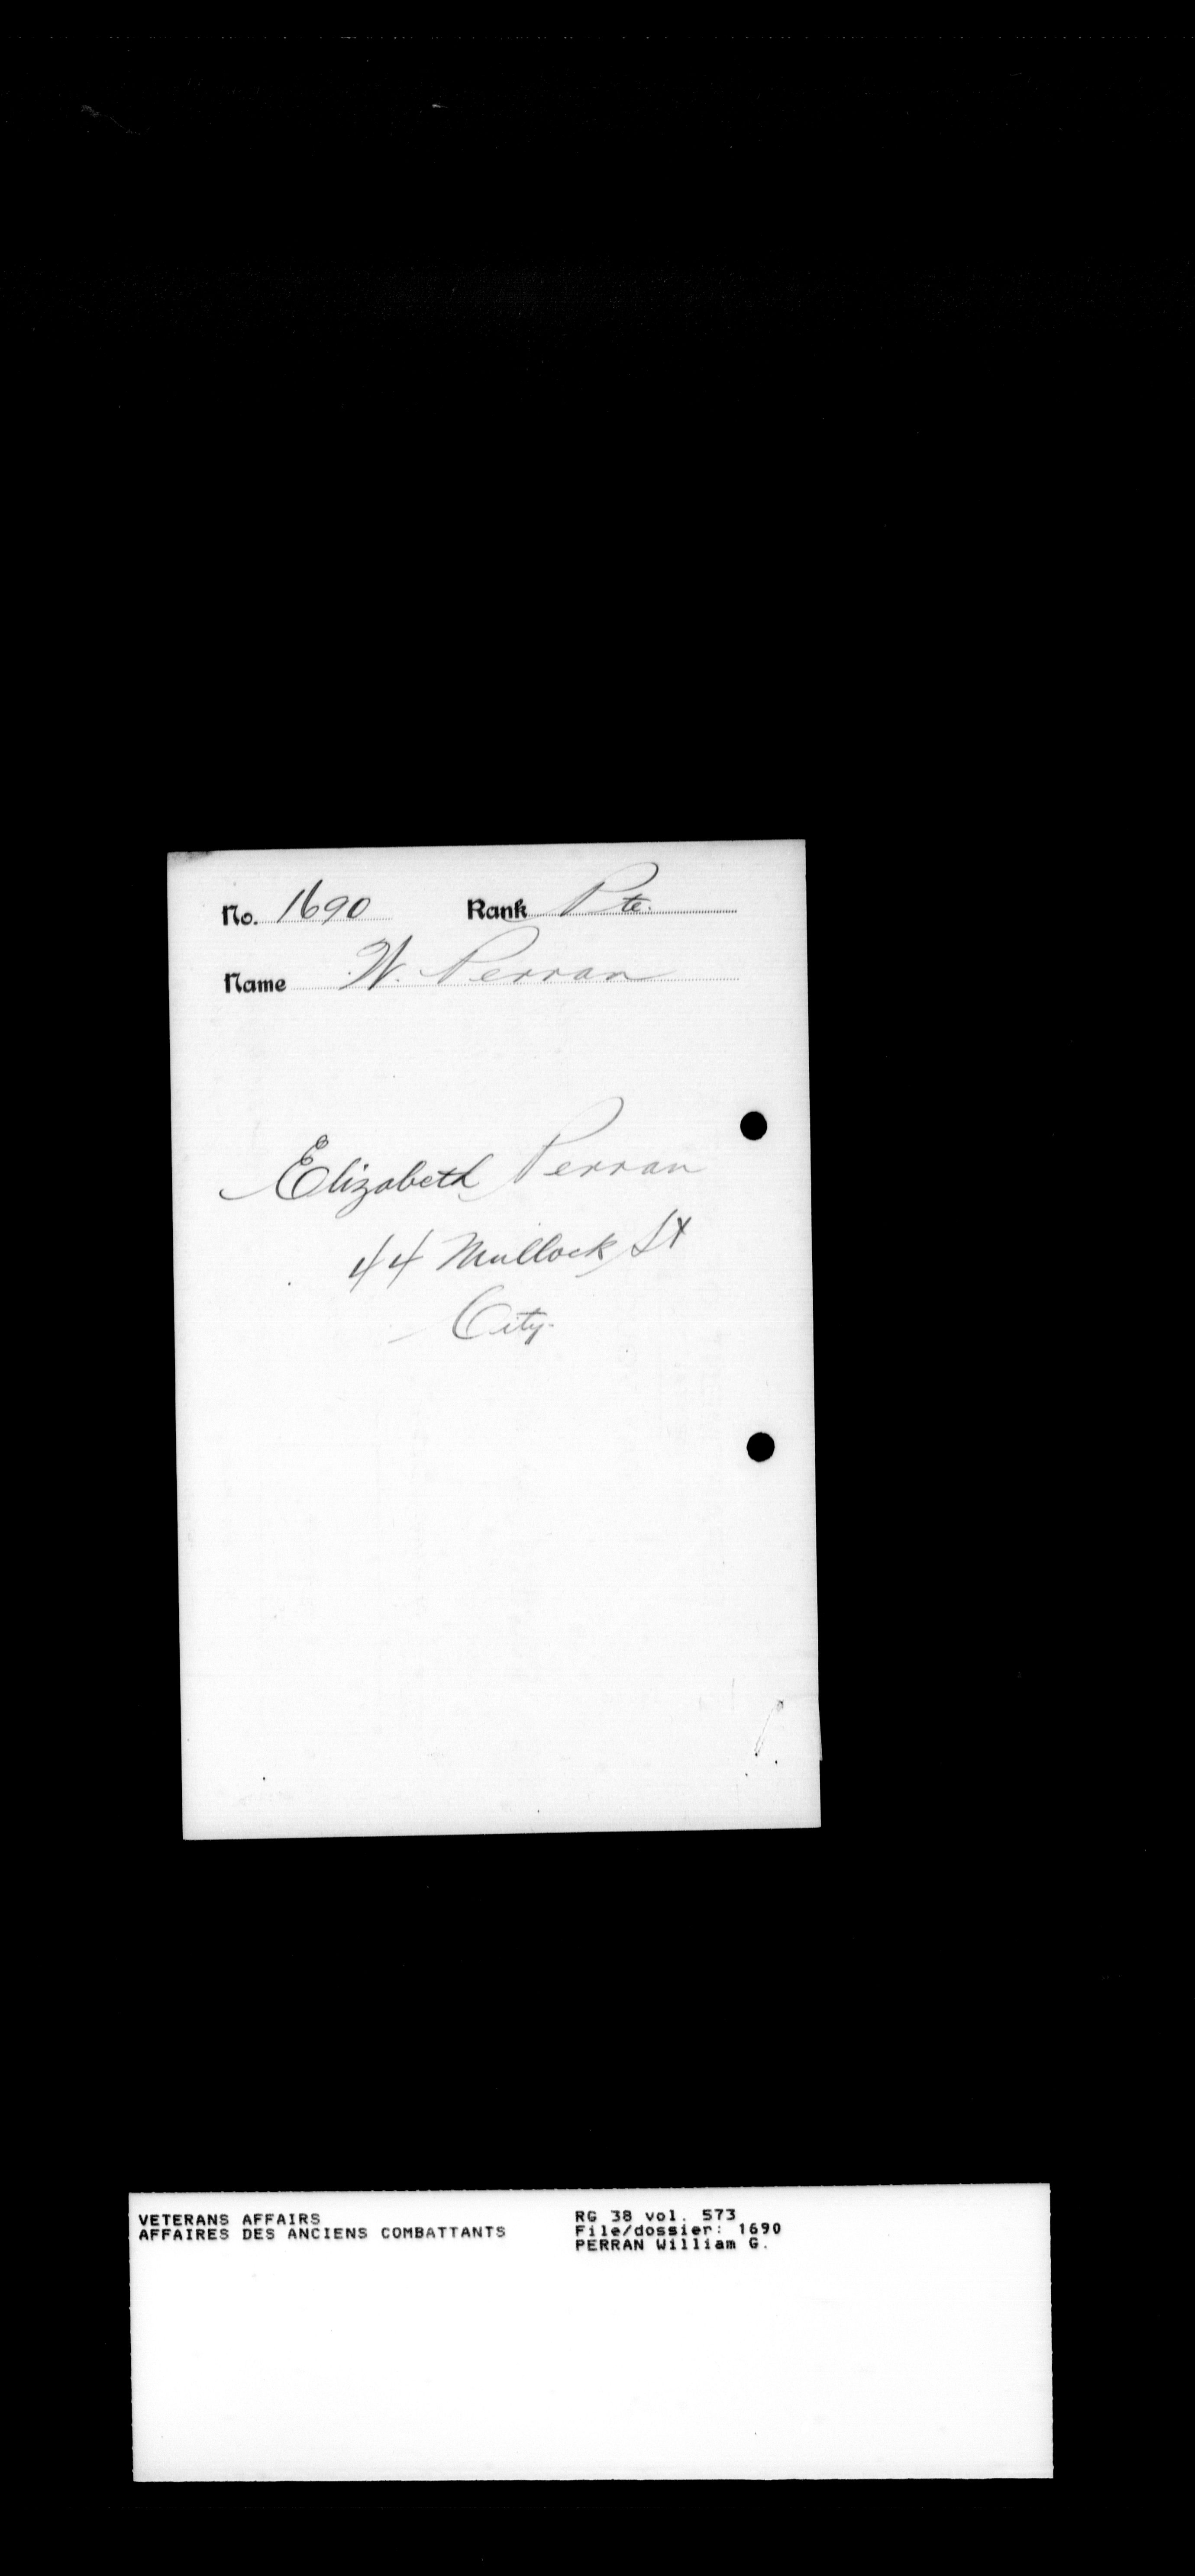 No. 1690 Rank Pte.
Name W. Perran
Elizabeth Perran
44 Mullock St
City.
VETERANS AFFAIRS
AFFAIRES DES ANCIENS COMBATTANTS
RG 38 vol. 573
File/dossier: 1690
PERRAN William G.